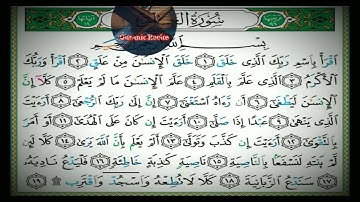 سُورَةُ
Quranic Recite
بِسْمِ اللَّهِ
ٱقْرَأْ بِٱسْمِ رَبِّكَ ٱلَّذِى خَلَقَ ١ خَلَقَ ٱلْإِنسَٰنَ مِنْ عَلَقٍ ٢ ٱقْرَأْ وَرَبُّكَ
ٱلْأَكْرَمُ ٣ ٱلَّذِى عَلَّمَ بِٱلْقَلَمِ ٤ عَلَّمَ ٱلْإِنسَٰنَ مَا لَمْ يَعْلَمْ ٥ كَلَّآ إِنَّ
ٱلْإِنسَٰنَ لَيَطْغَىٰٓ ٦ أَن رَّءَاهُ ٱسْتَغْنَىٰٓ ٧ إِنَّ إِلَىٰ رَبِّكَ ٱلرُّجْعَىٰٓ ٨ أَرَءَيْتَ
ٱلَّذِى يَنْهَىٰ ٩ عَبْدًا إِذَا صَلَّىٰٓ ١٠ أَرَءَيْتَ إِن كَانَ عَلَى ٱلْهُدَىٰٓ ١١ أَوْ أَمَرَ
بِٱلتَّقْوَىٰٓ ١٢ أَرَءَيْتَ إِن كَذَّبَ وَتَوَلَّىٰٓ ١٣ أَلَمْ يَعْلَم بِأَنَّ ٱللَّهَ يَرَىٰ ١٤ كَلَّا لَئِن
لَّمْ يَنتَهِ لَنَسْفَعًۢا بِٱلنَّاصِيَةِ ١٥ نَاصِيَةٍ كَٰذِبَةٍ خَاطِئَةٍ ١٦ فَلْيَدْعُ نَادِيَهُۥ
١٧ سَنَدْعُ ٱلزَّبَانِيَةَ ١٨ كَلَّا لَا تُطِعْهُ وَٱسْجُدْ وَٱقْتَرِب ١٩